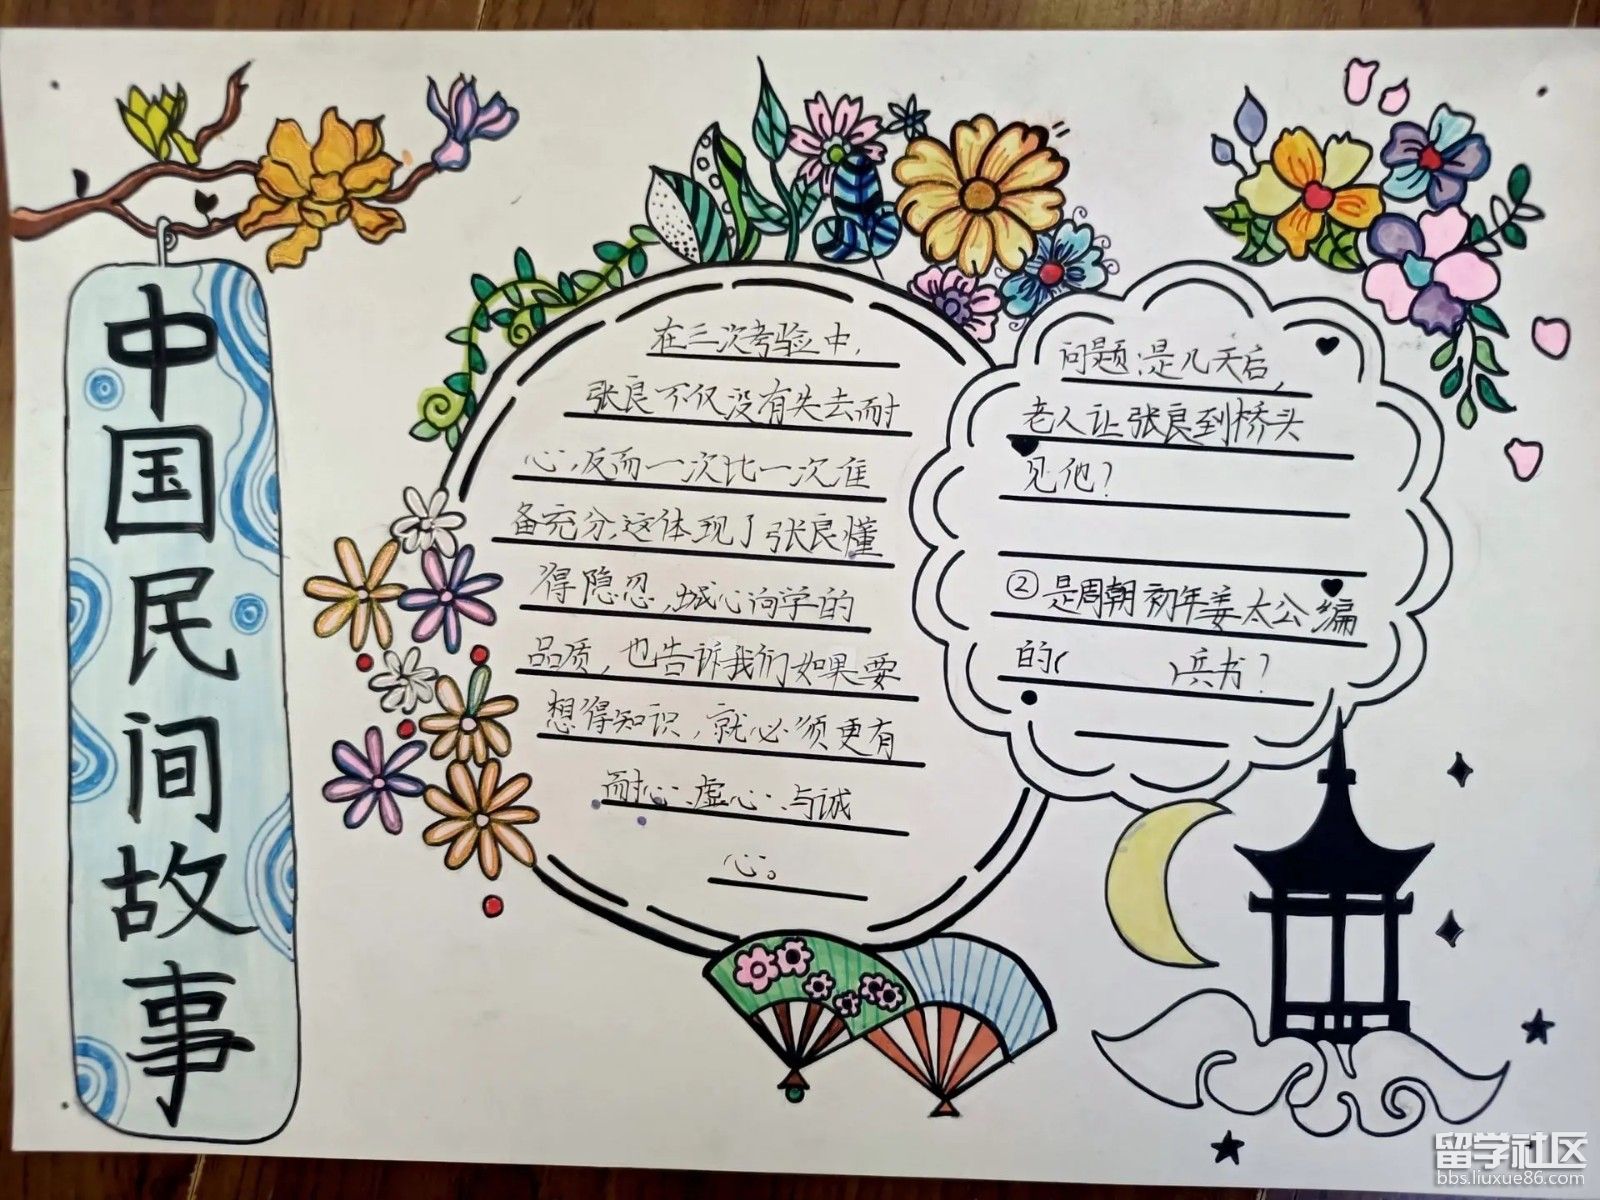 中国民间故事
在三次考验中，
张良不仅没有失去耐
心，反而一次比一次准
备充分，这体现了张良懂
得隐忍，诚心向学的
品质，也告诉我们如果要
想得知识，就必须更有
耐心、虚心、与诚
心。
问题：是几天后，
老人让张良到桥头
见他？
②是周朝初年姜太公编
的（　　　）兵书？
留学社区
bbs.liuxue86.com